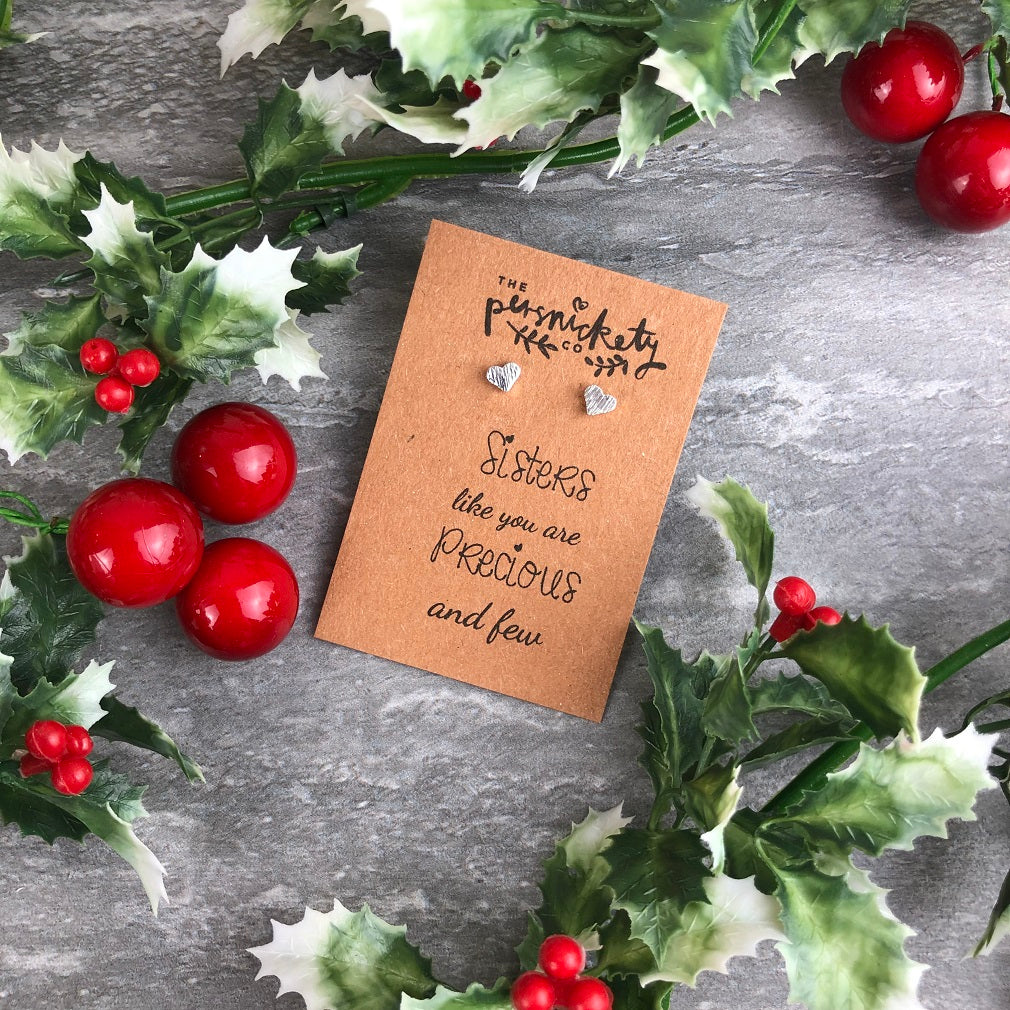 THE
persnickety
CO
Sisters
like you are
Precious
and few